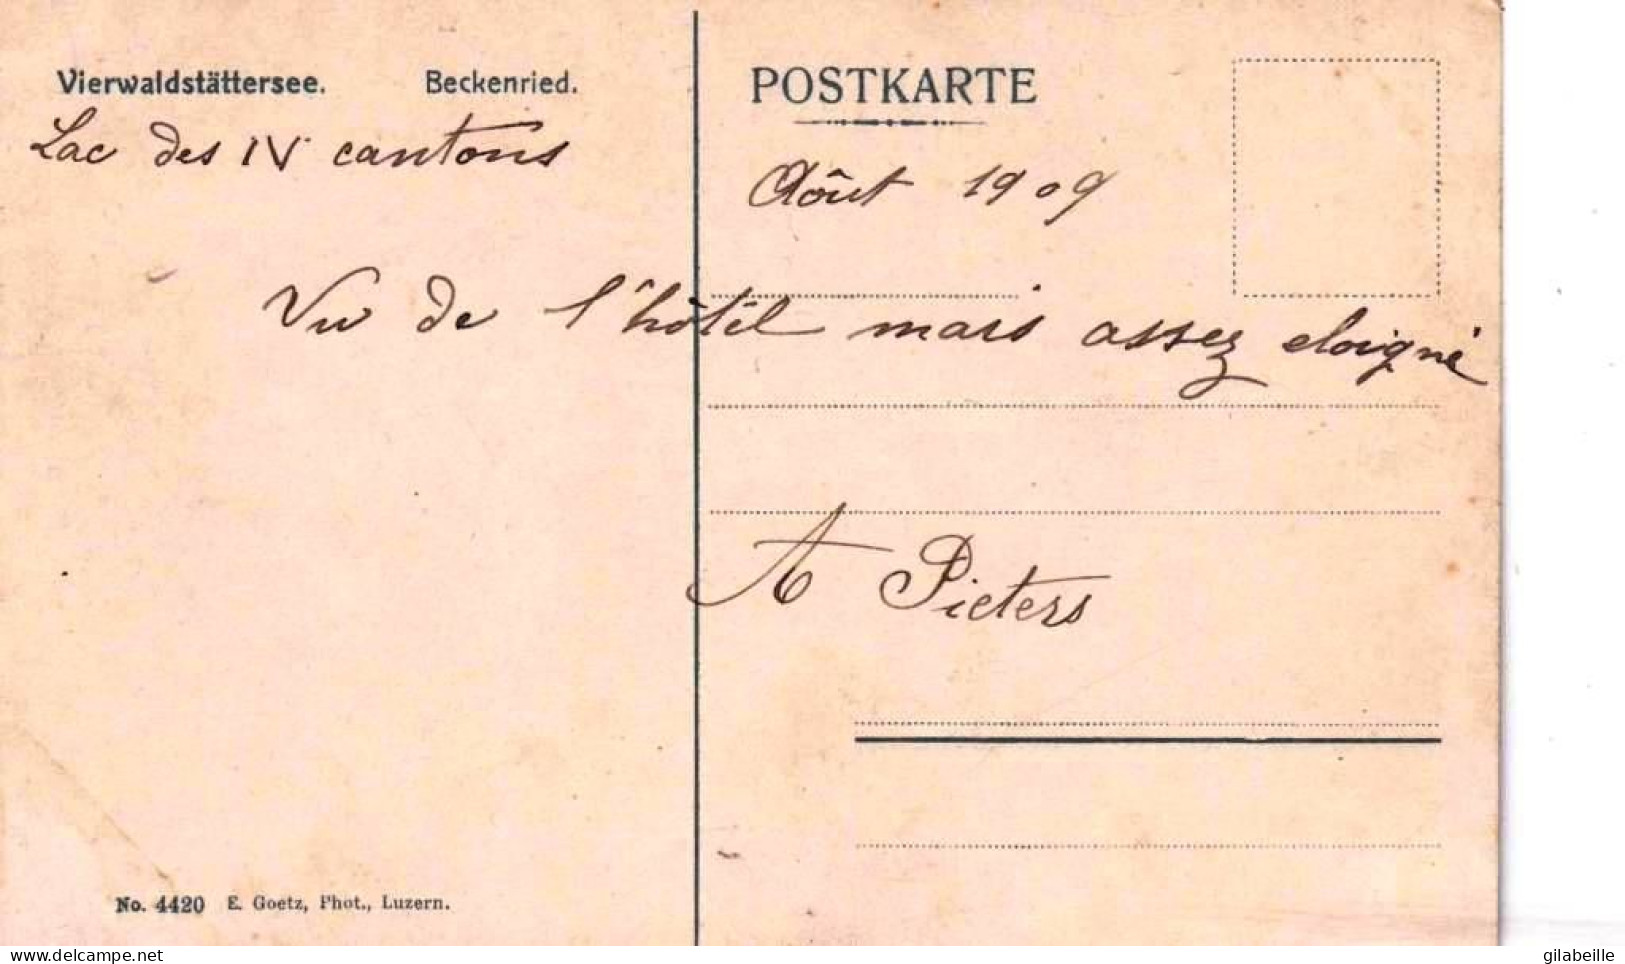 Vierwaldstättersee. Beckenried.
Lac des IV cantons
POSTKARTE
Août 1909
Vu de l'hôtel mais assez eloigné
A Pieters
No. 4420 E. Goetz, Phot., Luzern.
delcampe.net
gilabeille